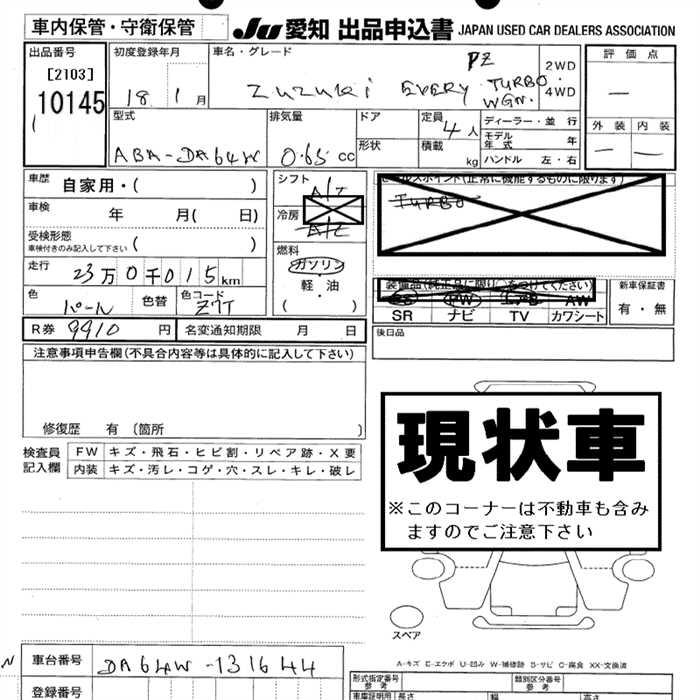 車内保管・守衛保管
JU 愛知 出品申込書 JAPAN USED CAR DEALERS ASSOCIATION
出品番号
[2103]
10145
初度登録年月
18 1 月
車名・グレード
ZUZUKI EVERY TURBO WGN.
PZ
2WD
・
4WD
評価点
—
外装 内装
— —
型式
ABA-DA64W
排気量
0.65 cc
ドア
形状
定員 4 人
積載 kg
ディーラー・並行
モデル年式 年
ハンドル 左・右
車歴 自家用・( )
車検 年 月( 日)
受検形態
車検付きのみ記入して下さい ( )
走行 23万0千015km
色 パール 色替
色コード Z7T
R券 9910 円 名変通知期限 月 日
シフト A/T
冷房 A/C
燃料
ガソリン
・
軽・油
( )
セールスポイント(正常に機能するものに限ります)
TURBO
装備品(純正品に限り○をつけてください)
PS PW エアB AW
SR ナビ TV カワシート
新車保証書
有・無
後日品
注意事項申告欄(不具合内容等は具体的に記入して下さい)
修復歴 有 (箇所 )
検査員記入欄
FW キズ・飛石・ヒビ割・リペア跡・X要
内装 キズ・汚レ・コゲ・穴・スレ・キレ・破レ
現状車
※このコーナーは不動車も含み
ますのでご注意下さい
スペア
A-キズ E-エクボ U-凹み W-補修跡 S-サビ C-腐食 XX-交換済
車台番号 DA64W-131644
登録番号
形式指定番号
参考
類別区分番号
参考
車庫証明用
参考
長さ
幅
高さ